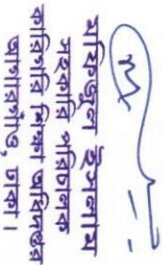 মফিজুল ইসলাম
সহকারি পরিচালক
কারিগরি শিক্ষা অধিদপ্তর
আগারগাঁও, ঢাকা।